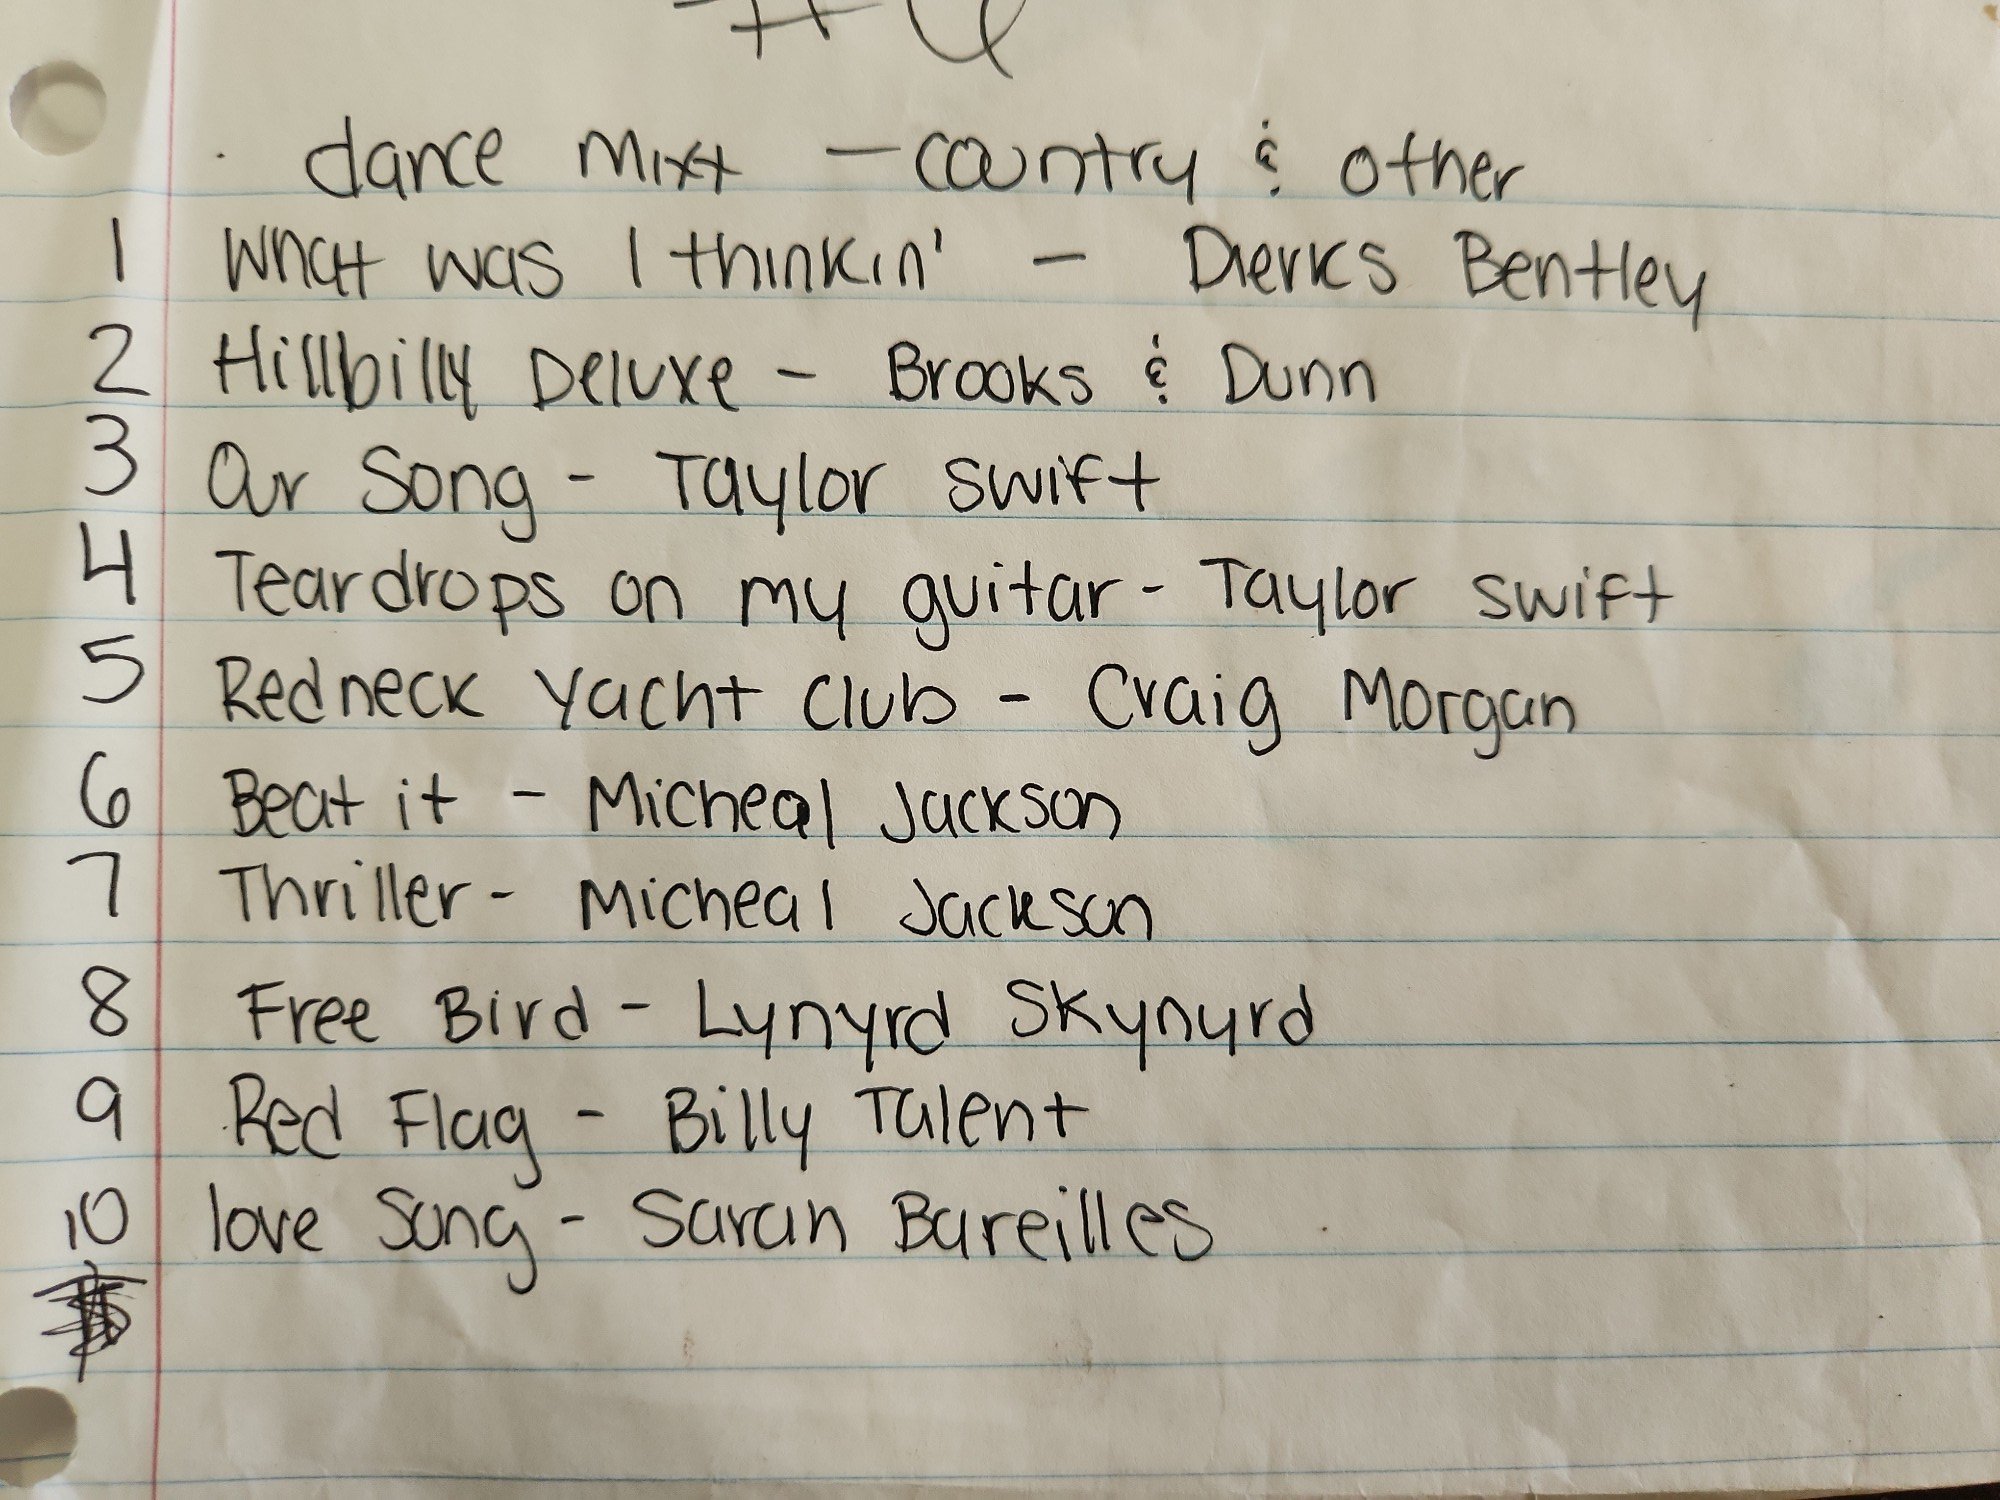 dance mixx - country & other
1 What was I thinkin' - Dierks Bentley
2 Hillbilly Deluxe - Brooks & Dunn
3 Our Song - Taylor swift
4 Teardrops on my guitar - Taylor swift
5 Redneck Yacht club - Craig Morgan
6 Beat it - Micheal Jackson
7 Thriller - Micheal Jackson
8 Free Bird - Lynyrd Skynyrd
9 Red Flag - Billy Talent
10 love Song - Sarah Bareilles